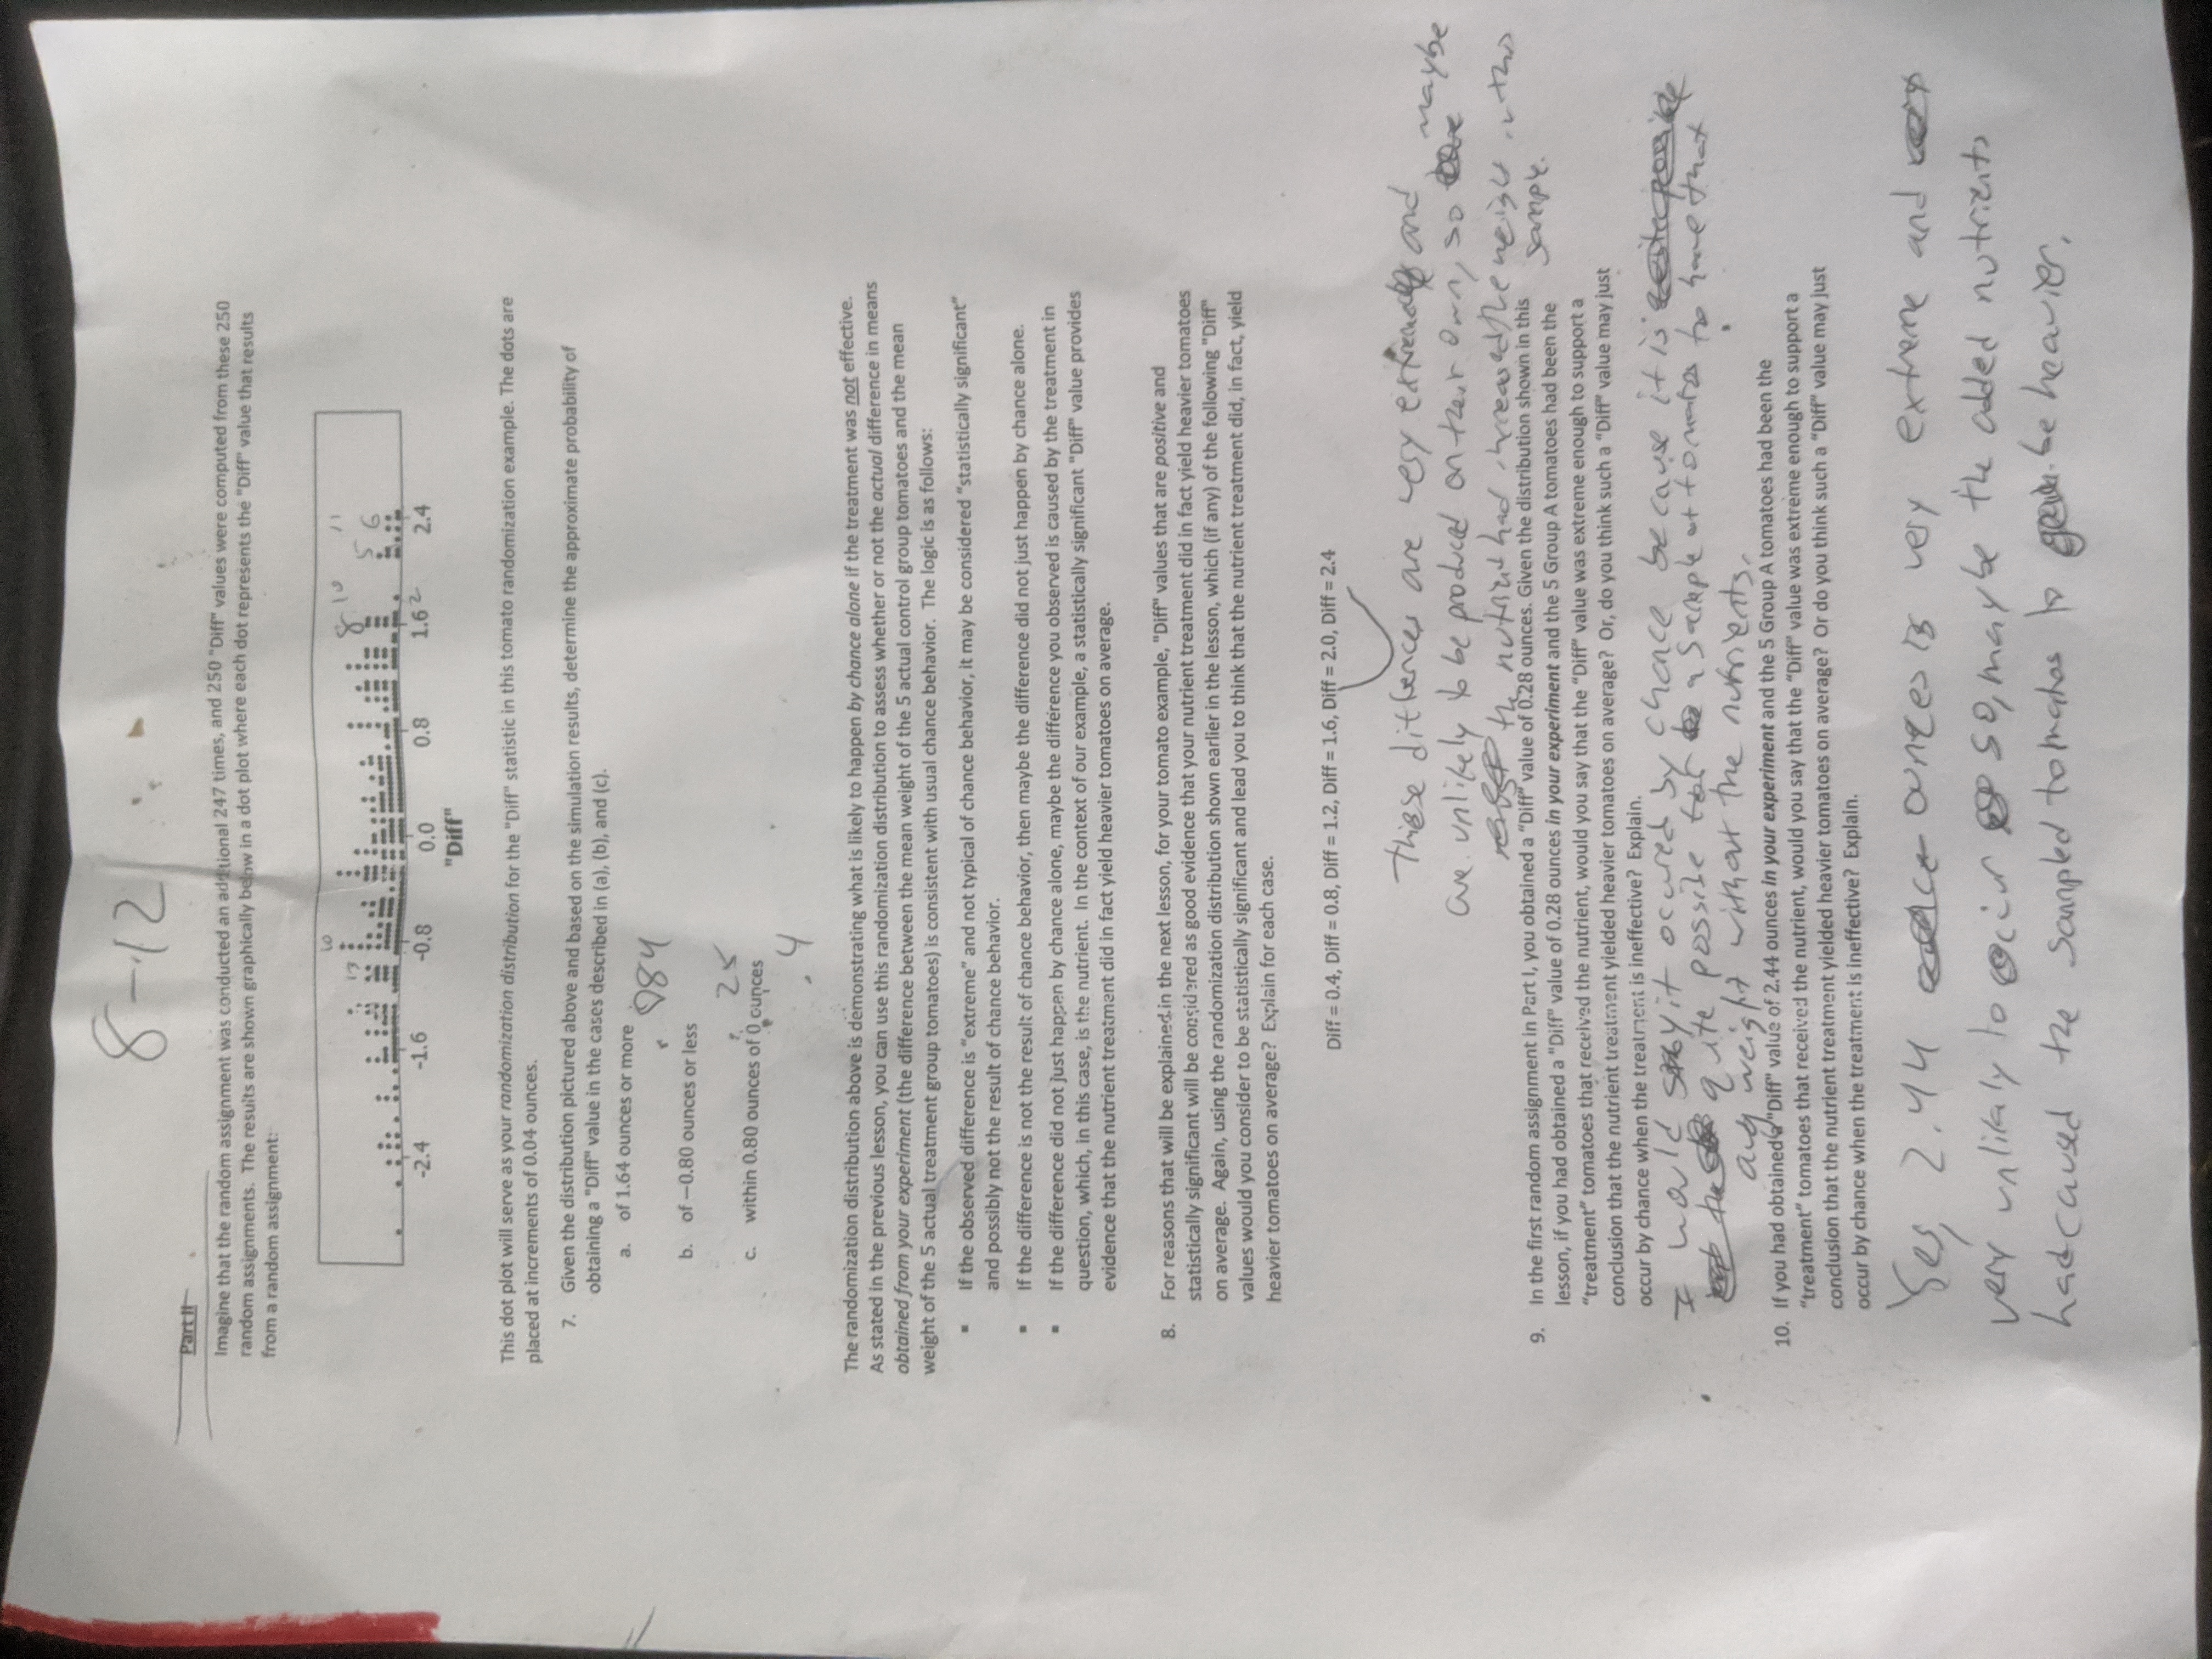 8-12
Part II
Imagine that the random assignment was conducted an additional 247 times, and 250 "Diff" values were computed from these 250
random assignments. The results are shown graphically below in a dot plot where each dot represents the "Diff" value that results
from a random assignment:
10
13
8 10
11
5 6
-2.4 -1.6 -0.8 0.0 0.8 1.6 2 2.4
"Diff"
This dot plot will serve as your randomization distribution for the "Diff" statistic in this tomato randomization example. The dots are
placed at increments of 0.04 ounces.
7. Given the distribution pictured above and based on the simulation results, determine the approximate probability of
obtaining a "Diff" value in the cases described in (a), (b), and (c).
a. of 1.64 ounces or more
.084
b. of −0.80 ounces or less
.25
c. within 0.80 ounces of 0 ounces
.4
The randomization distribution above is demonstrating what is likely to happen by chance alone if the treatment was not effective.
As stated in the previous lesson, you can use this randomization distribution to assess whether or not the actual difference in means
obtained from your experiment (the difference between the mean weight of the 5 actual control group tomatoes and the mean
weight of the 5 actual treatment group tomatoes) is consistent with usual chance behavior. The logic is as follows:
▪ If the observed difference is "extreme" and not typical of chance behavior, it may be considered "statistically significant"
and possibly not the result of chance behavior.
▪ If the difference is not the result of chance behavior, then maybe the difference did not just happen by chance alone.
▪ If the difference did not just happen by chance alone, maybe the difference you observed is caused by the treatment in
question, which, in this case, is the nutrient. In the context of our example, a statistically significant "Diff" value provides
evidence that the nutrient treatment did in fact yield heavier tomatoes on average.
8. For reasons that will be explained in the next lesson, for your tomato example, "Diff" values that are positive and
statistically significant will be considered as good evidence that your nutrient treatment did in fact yield heavier tomatoes
on average. Again, using the randomization distribution shown earlier in the lesson, which (if any) of the following "Diff"
values would you consider to be statistically significant and lead you to think that the nutrient treatment did, in fact, yield
heavier tomatoes on average? Explain for each case.
Diff = 0.4, Diff = 0.8, Diff = 1.2, Diff = 1.6, Diff = 2.0, Diff = 2.4
These are very and
are unlikely to be produced on their own, so maybe
the nutrient had increased the weight in this
sample.
9. In the first random assignment in Part I, you obtained a "Diff" value of 0.28 ounces. Given the distribution shown in this
lesson, if you had obtained a "Diff" value of 0.28 ounces in your experiment and the 5 Group A tomatoes had been the
"treatment" tomatoes that received the nutrient, would you say that the "Diff" value was extreme enough to support a
conclusion that the nutrient treatment yielded heavier tomatoes on average? Or, do you think such a "Diff" value may just
occur by chance when the treatment is ineffective? Explain.
I would say it occured by chance because it is
quite possible for a sample of tomatos to have that
avg weight without the nutrients.
10. If you had obtained a "Diff" value of 2.44 ounces in your experiment and the 5 Group A tomatoes had been the
"treatment" tomatoes that received the nutrient, would you say that the "Diff" value was extreme enough to support a
conclusion that the nutrient treatment yielded heavier tomatoes on average? Or do you think such a "Diff" value may just
occur by chance when the treatment is ineffective? Explain.
Yes, 2.44 ounces is very extreme and
very unlikely to occur so, maybe the added nutrients
had caused the sampled tomatos to be heavier.